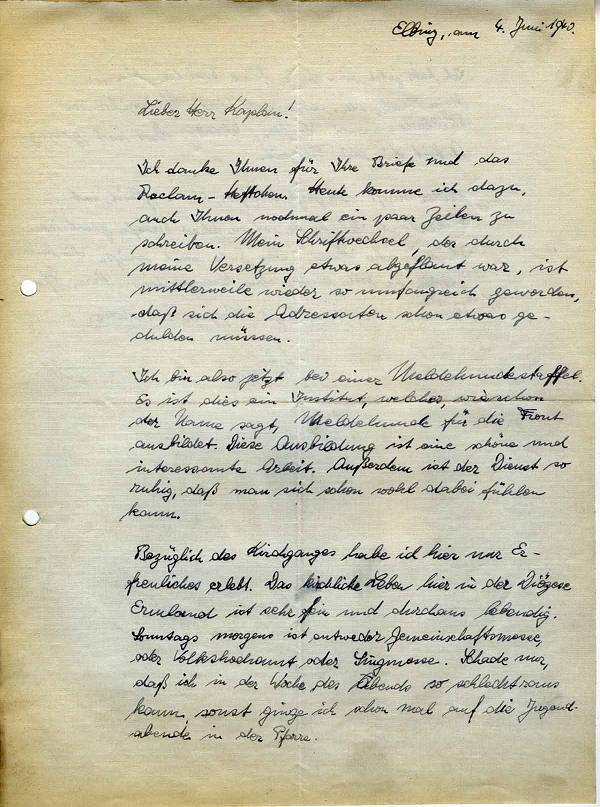 Elbing, am 4. Juni 1940.
Lieber Herr Kaplan!
Ich danke Ihnen für Ihre Briefe und das
Reclam-Heftchen. Heute komme ich dazu,
auch Ihnen nochmal ein paar Zeilen zu
schreiben. Mein Schriftwechsel, der durch
meine Versetzung etwas abgeflaut war, ist
mittlerweile wieder so umfangreich geworden,
daß sich die Adressaten schon etwas ge-
dulden müssen.
Ich bin also jetzt bei einer Meldehundestaffel.
Es ist dies ein Institut, welches, wie schon
der Name sagt, Meldehunde für die Front
ausbildet. Diese Ausbildung ist eine schöne und
interessante Arbeit. Außerdem ist der Dienst so
ruhig, daß man sich schon wohl dabei fühlen
kann.
Bezüglich des Kirchganges habe ich hier nur Er-
freuliches erlebt. Das kirchliche Leben hier in der Diözese
Ermland ist sehr fein und durchaus lebendig.
Sonntags morgens ist entweder Gemeinschaftsmesse,
oder Volkshochamt oder Singmesse. Schade nur,
daß ich in der Woche des Abends so schlecht raus
kann, sonst ginge ich schon mal auf die Jugend-
abende in der Pfarre.